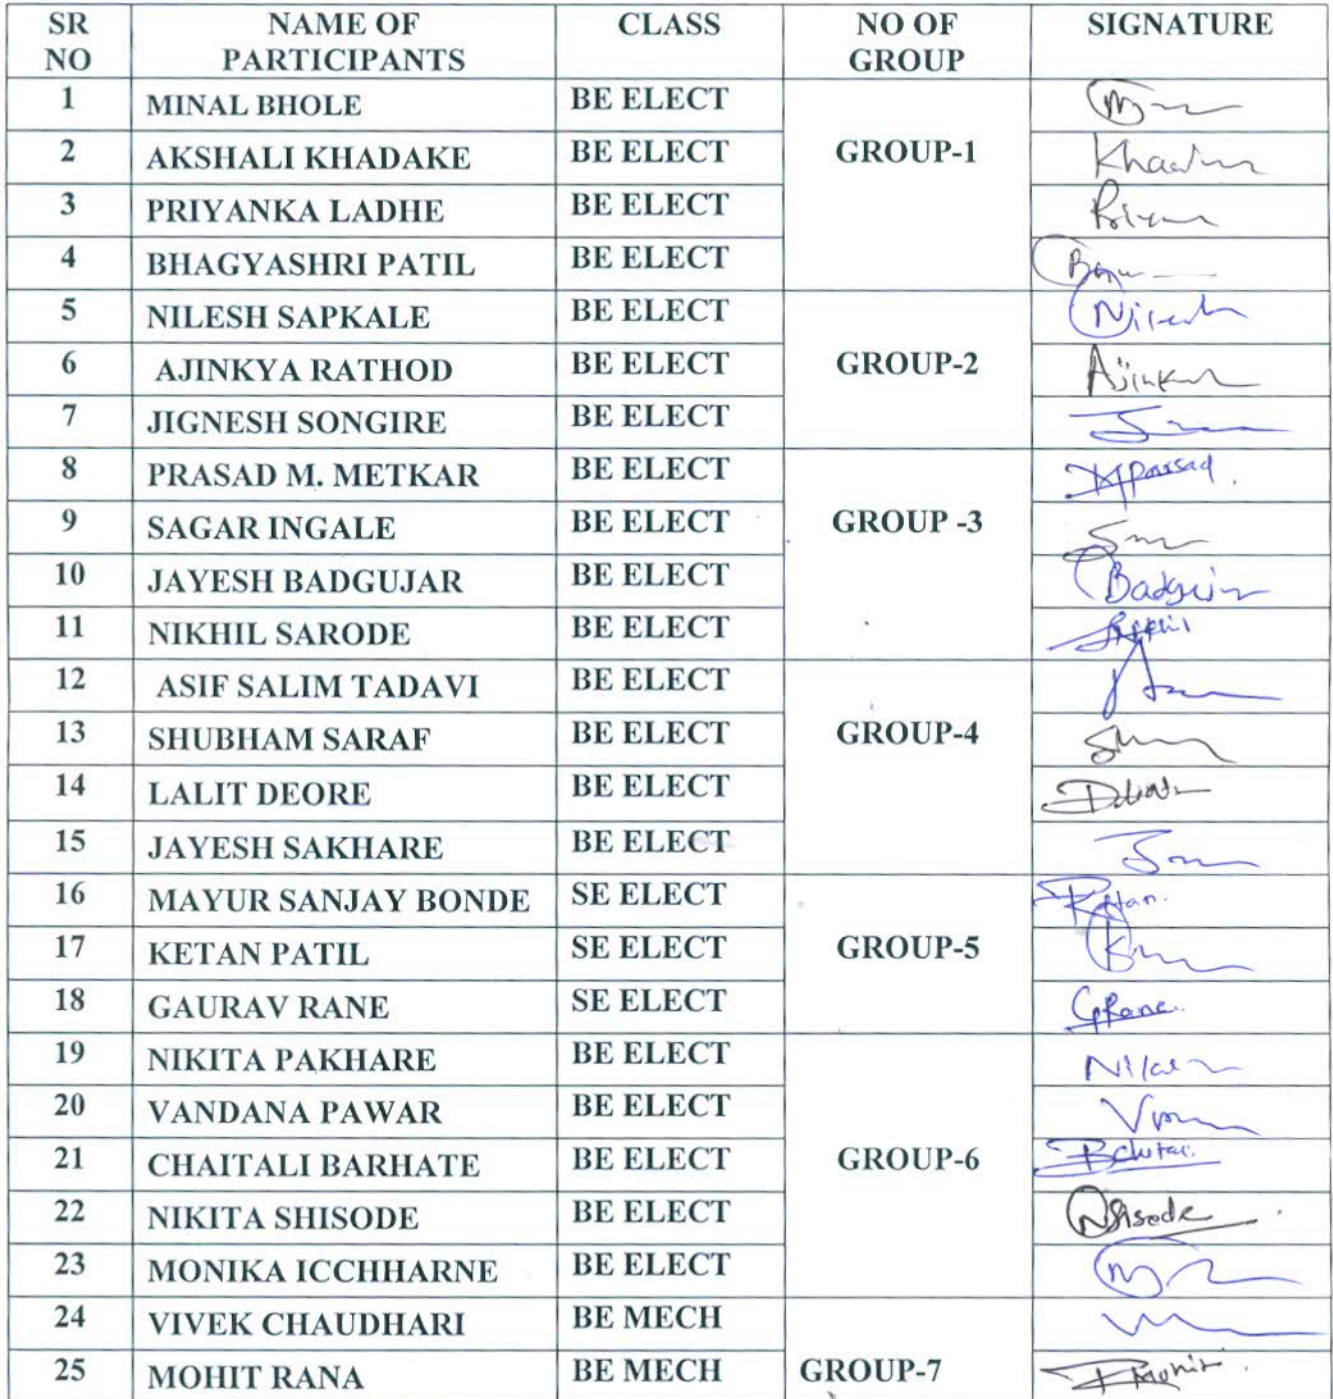 SR NO NAME OF PARTICIPANTS CLASS NO OF GROUP SIGNATURE
1 MINAL BHOLE BE ELECT
2 AKSHALI KHADAKE BE ELECT GROUP-1
3 PRIYANKA LADHE BE ELECT
4 BHAGYASHRI PATIL BE ELECT
5 NILESH SAPKALE BE ELECT Nilesh
6 AJINKYA RATHOD BE ELECT GROUP-2
7 JIGNESH SONGIRE BE ELECT
8 PRASAD M. METKAR BE ELECT
9 SAGAR INGALE BE ELECT GROUP -3
10 JAYESH BADGUJAR BE ELECT
11 NIKHIL SARODE BE ELECT
12 ASIF SALIM TADAVI BE ELECT
13 SHUBHAM SARAF BE ELECT GROUP-4
14 LALIT DEORE BE ELECT
15 JAYESH SAKHARE BE ELECT
16 MAYUR SANJAY BONDE SE ELECT
17 KETAN PATIL SE ELECT GROUP-5
18 GAURAV RANE SE ELECT GRane.
19 NIKITA PAKHARE BE ELECT
20 VANDANA PAWAR BE ELECT
21 CHAITALI BARHATE BE ELECT GROUP-6
22 NIKITA SHISODE BE ELECT NShisode
23 MONIKA ICCHHARNE BE ELECT
24 VIVEK CHAUDHARI BE MECH
25 MOHIT RANA BE MECH GROUP-7